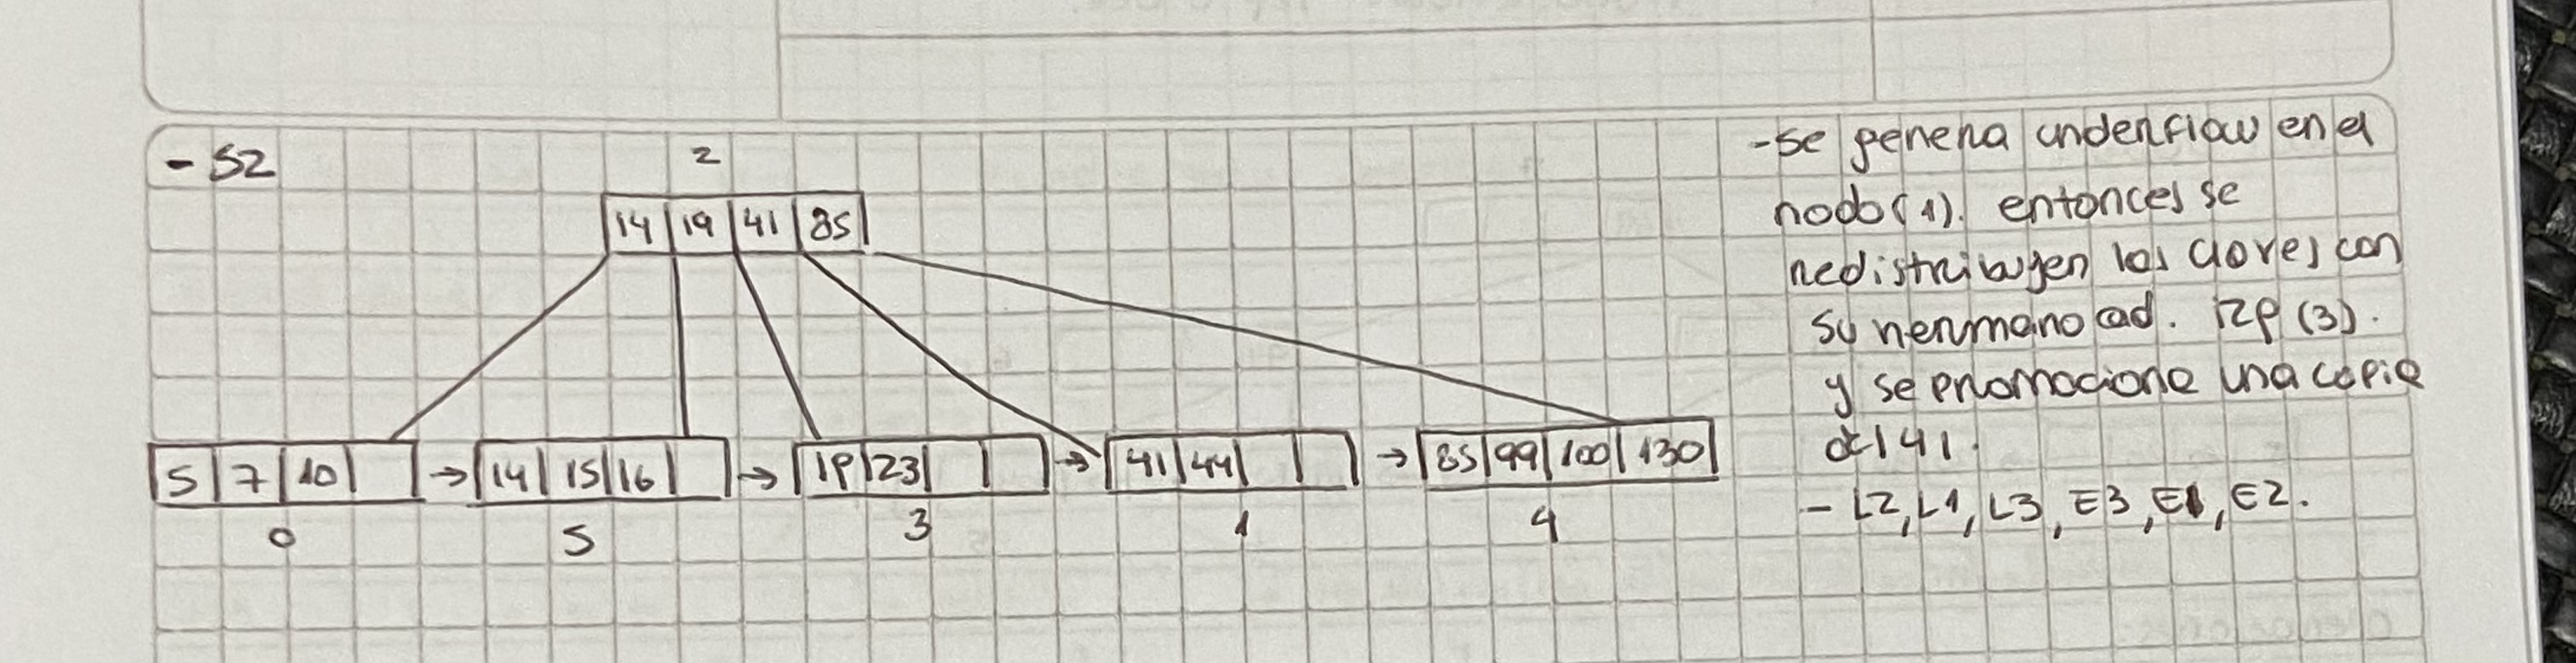 - 52
2
14 19 41 85
5 7 10 → 14 15 16 → 19 23 → 41 44 → 85 99 100 130
0 5 3 1 4
- se genera underflow en el
nodo (1). entonces se
redistribuyen las claves con
su hermano ad. izq (3).
y se promociona una copia
del 41.
- L2, L1, L3, E3, E1, E2.